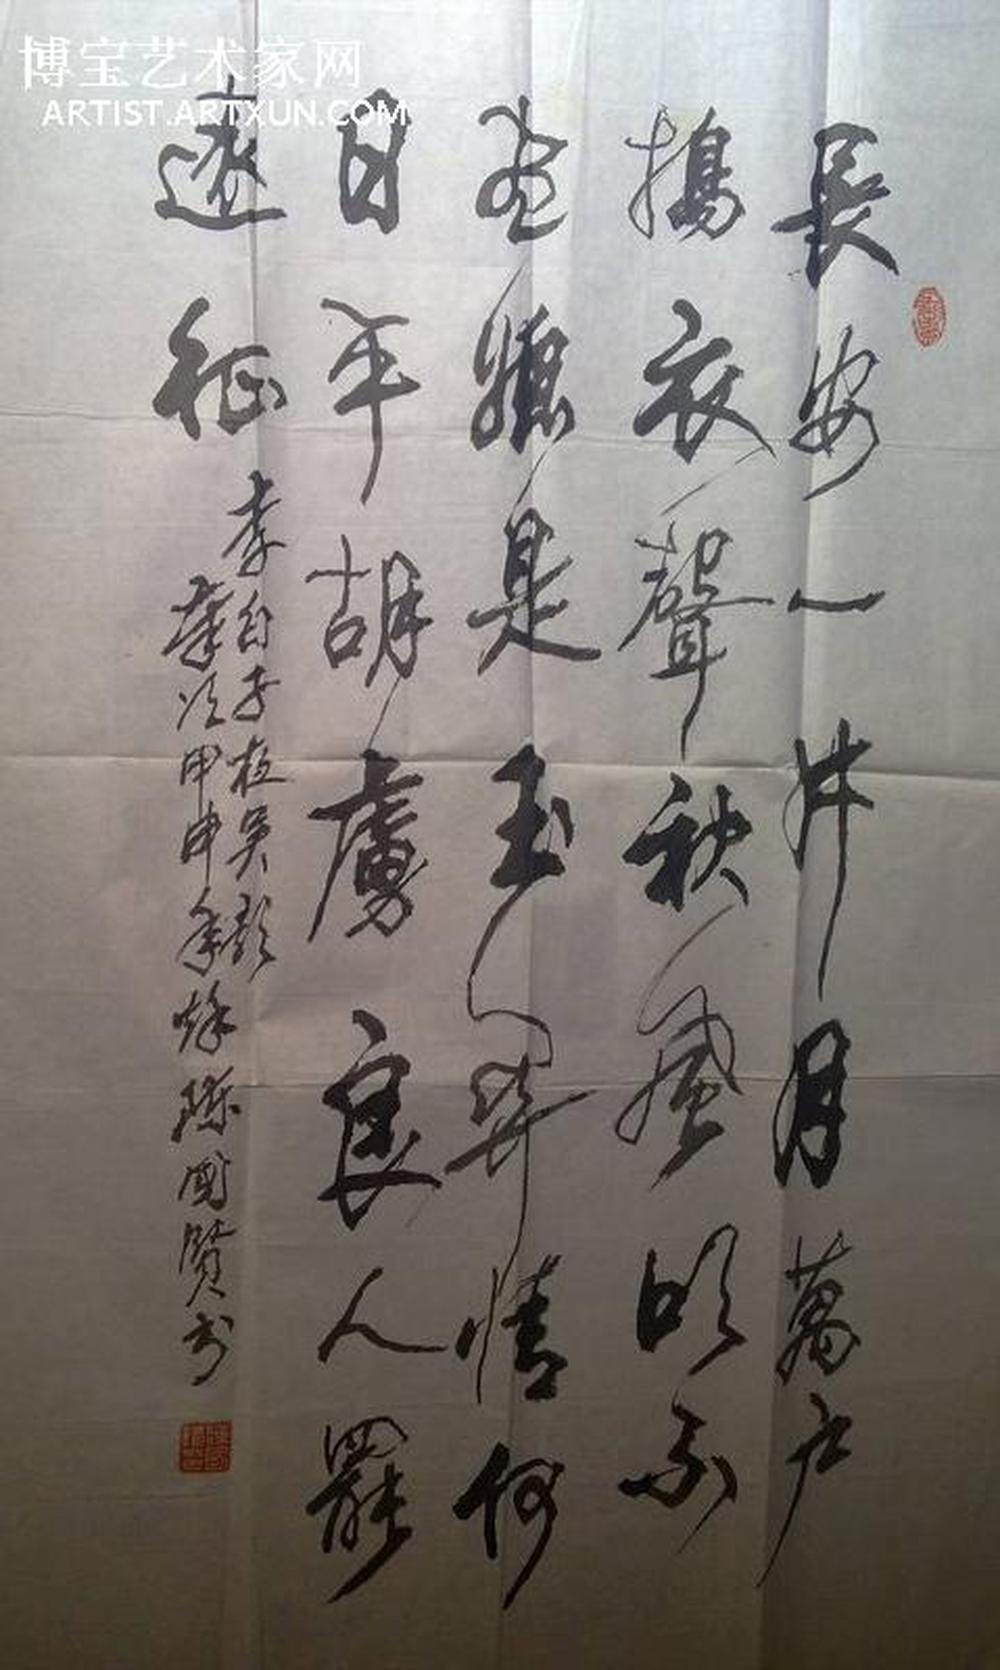 博宝艺术家网
ARTIST.ARTXUN.COM
長安一片月萬户
搗衣聲秋風吹不
盡總是玉關情何
日平胡虜良人罷
遠征
李白子夜吴歌
歲次甲申年 陈國賢书